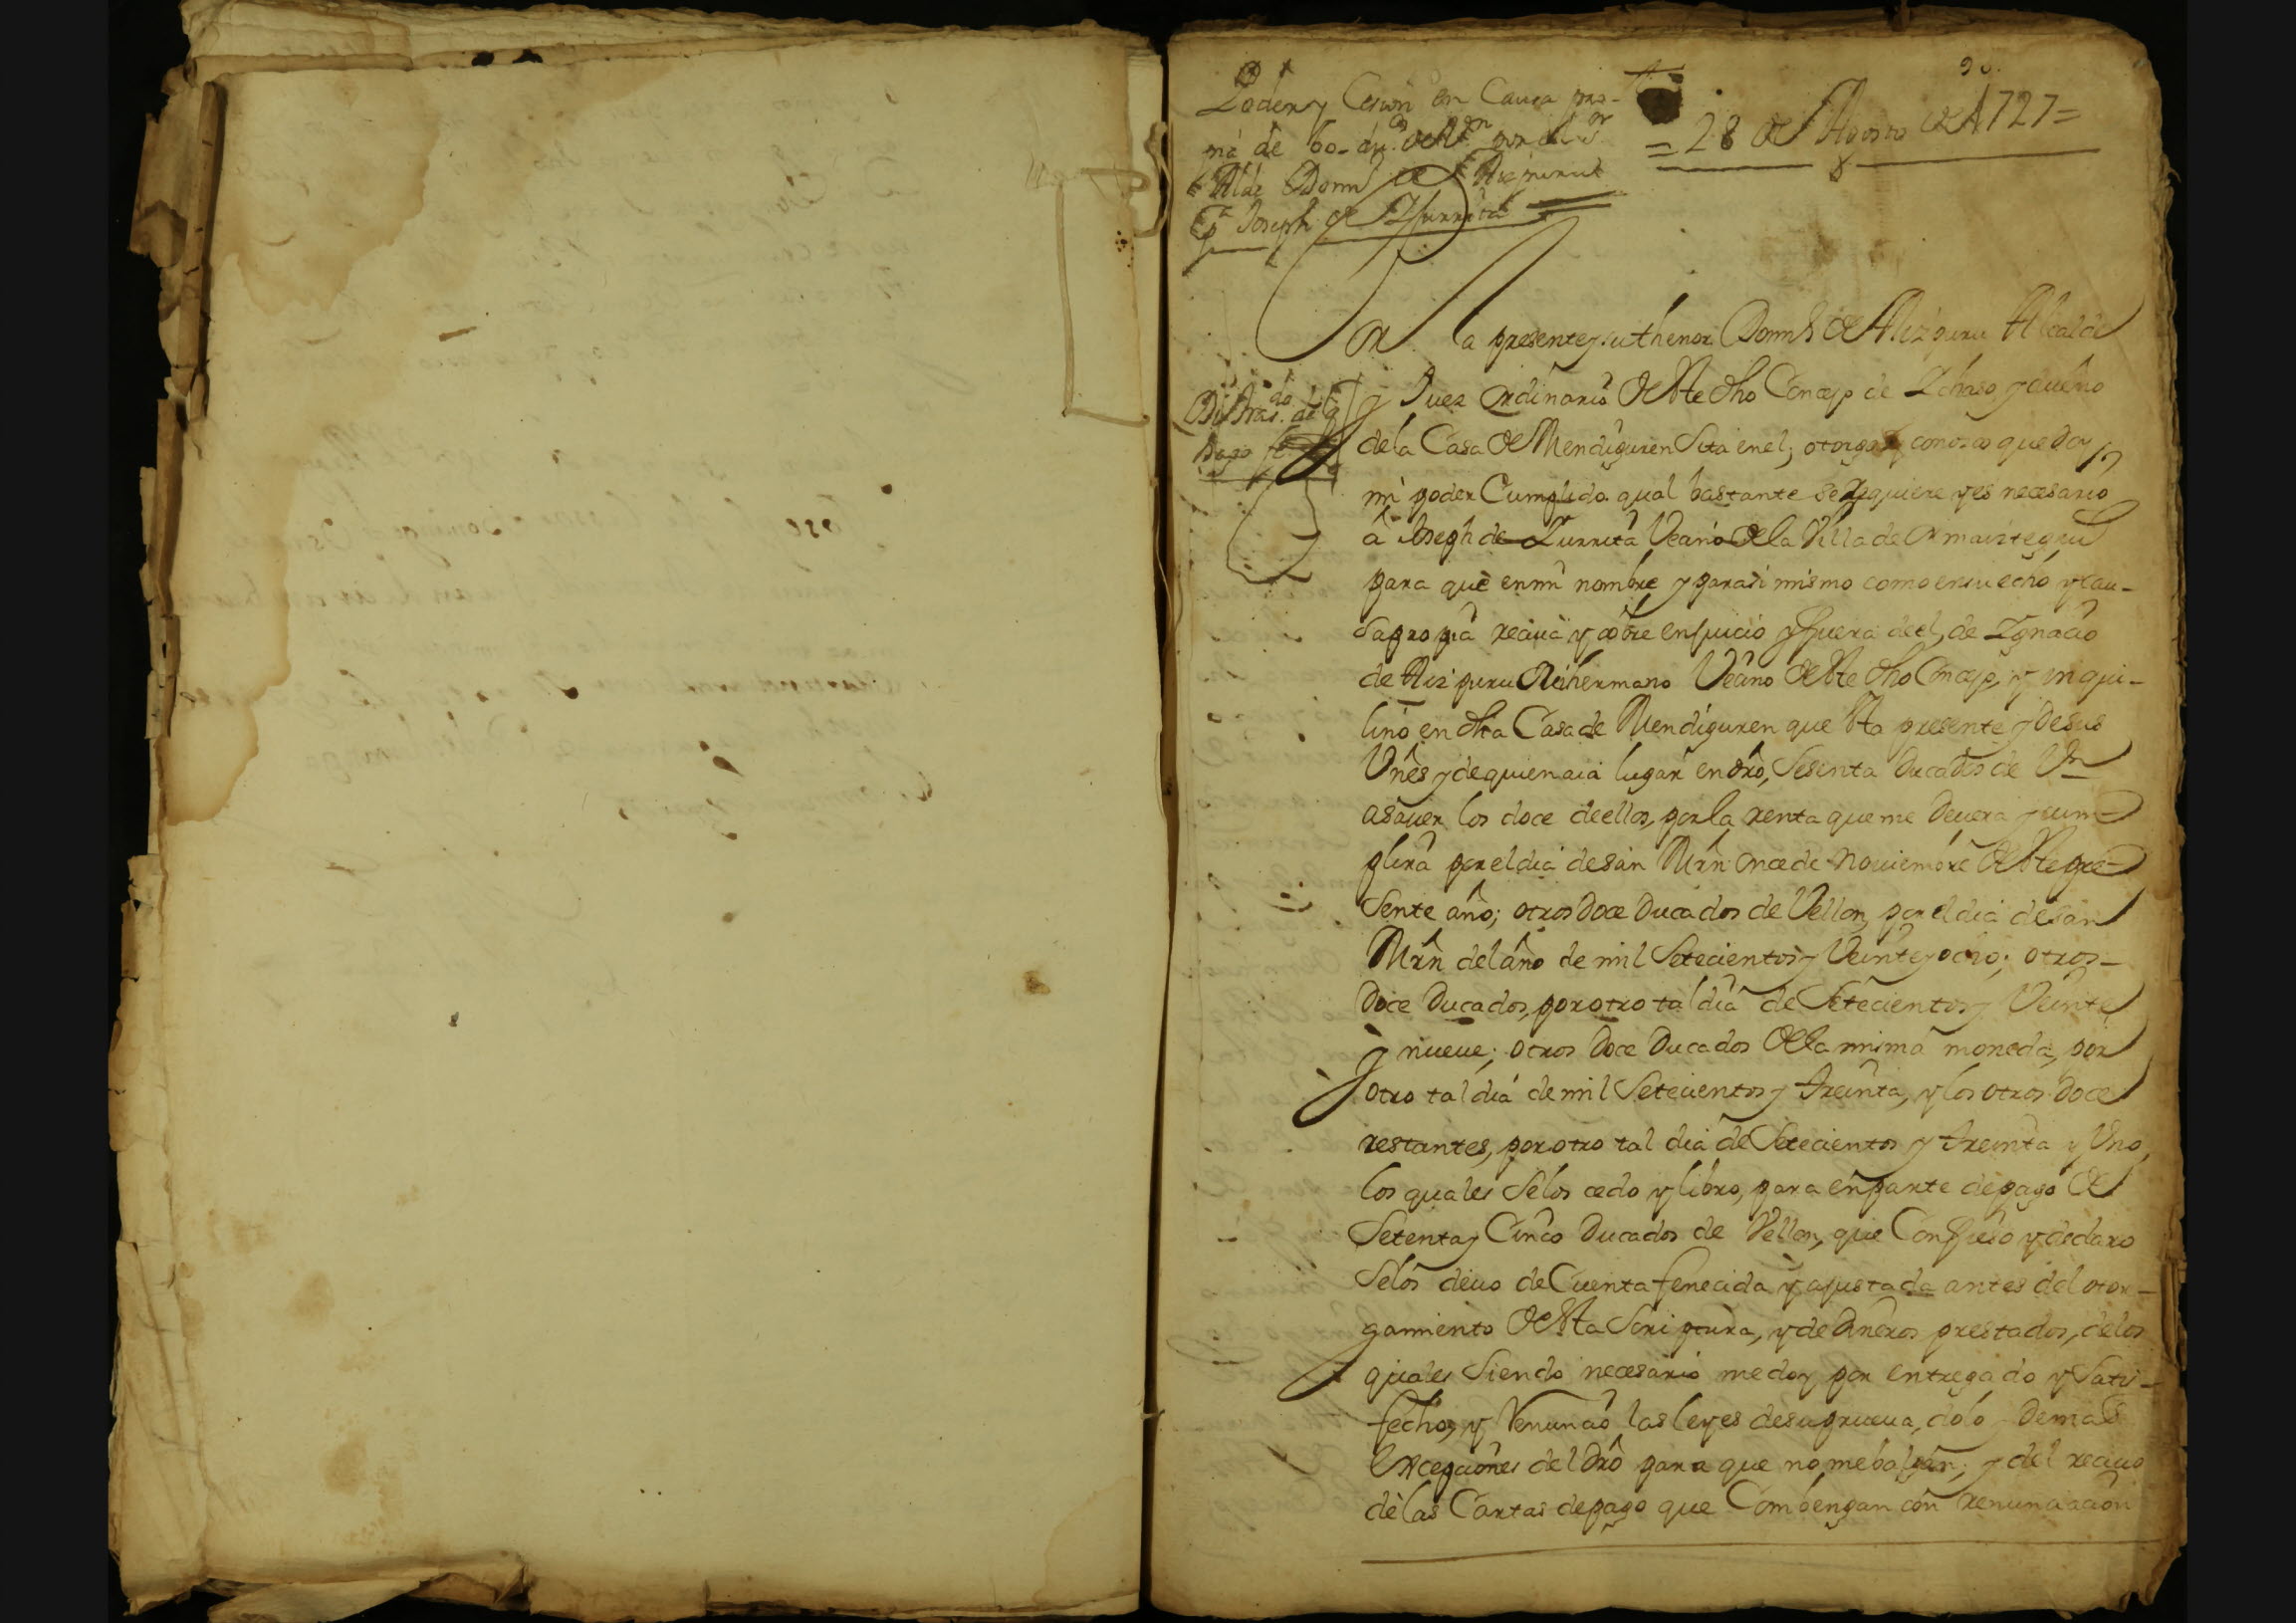 90.
Poder y Cesion en Causa pro-
pia de 60 du.os de Vn por el Sr
Alde Domgo de Aizpuru
Pa Joseph de Zurrita
= 28 de Agosto de 1727 =
Por la presente y su thenor Domgo de Aizpuru Alcalde
y Juez ordinario deste dho Concejo de Ichaso, y dueño
de la Casa de Mendiguren Sita en el; otorgo y conozco que doy
mi poder Cumplido qual bastante se rrequiere y es necesario
â Joseph de Zurrita Vecino de la Villa de Ormaiztegui
para que en mi nombre y para si mismo como en su echo y cau-
sa propia reciua y cobre en juicio y fuera del, de Ignacio
de Aizpuru Mi hermano Vecino deste dho Concejo, y inqui-
lino en dha Casa de Mendiguren que sta presente y de sus
Vnes y de quien aia lugar en dro, Sesenta Ducados de Vn
asauer los doce de ellos, por la renta que me deuera y cum-
plira por el dia de san Mrn once de Nouiembre deste pre-
Sente año; otros Doce Ducados de Vellon, por el dia de san
Mrn del año de mil Setecientos y Veinte y ocho; otros-
Doce Ducados, por otro tal dia de Setecientos y Veinte
y nueue; otros Doce Ducados de la misma moneda, por
otro tal dia de mil Setecientos y treinta, y los otros doce
restantes, por otro tal dia de Setecientos y treinta y Uno,
los quales Selos cedo y libro, para en parte de pago de
Setenta y Cinco Ducados de Vellon, que Confieso y declaro
Selos deuo de Cuenta fenecida y ajustada antes del otor-
gamiento desta Scriptura, y de Dineros prestados, de los
quales Siendo necesario me doy por entregado y Satis-
fecho, y Renuncio las leyes de su prueua, dolo y Demas
excepciones del Dro para que no me balgan; y del reciuo
de las Cartas de pago que Combengan con renunciacion